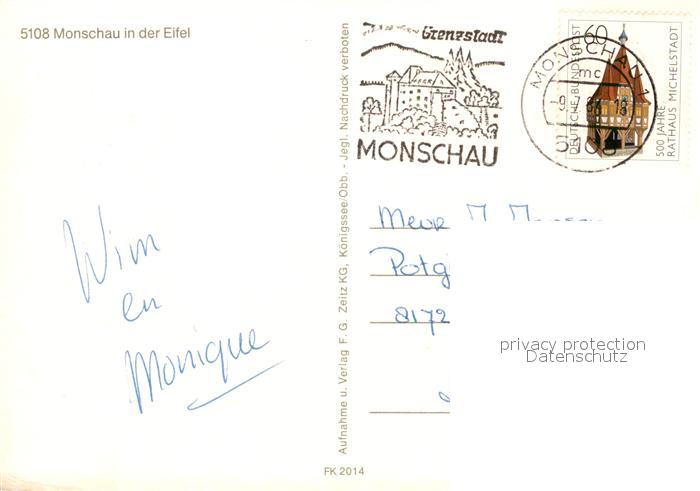 5108 Monschau in der Eifel
Grenzstadt
MONSCHAU
MONSCHAU 1
mc
5108
60
DEUTSCHE BUNDESPOST
500 JAHRE
RATHAUS MICHELSTADT
Wim
en
Monique
Aufnahme u. Verlag F. G. Zeitz KG, Königssee/Obb. - Jegl. Nachdruck verboten
Mevr M
Potg
8172
privacy protection
Datenschutz
FK 2014